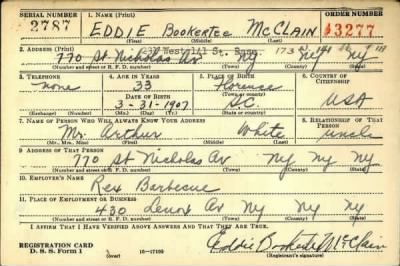 SERIAL NUMBER 1. NAME (Print) ORDER NUMBER
2787 EDDIE BOOKERTEE McCLAIN 13277
(First) (Middle) (Last)
2. ADDRESS (Print)
770 St Nicholas Av NY NY NY
(Number and street or R. F. D. number) (Town) (County) (State)
3. TELEPHONE 4. AGE IN YEARS 5. PLACE OF BIRTH 6. COUNTRY OF CITIZENSHIP
none 33 Florence
DATE OF BIRTH (Town or county)
3-31-1907 S.C. USA
(Exchange) (Number) (Mo.) (Day) (Yr.) (State or country)
7. NAME OF PERSON WHO WILL ALWAYS KNOW YOUR ADDRESS 8. RELATIONSHIP OF THAT PERSON
Mr. Arthur White uncle
(Mr., Mrs., Miss) (First) (Middle) (Last)
9. ADDRESS OF THAT PERSON
770 St Nicholas Av NY NY NY
(Number and street or R. F. D. number) (Town) (County) (State)
10. EMPLOYER'S NAME
Rex Barbecue
11. PLACE OF EMPLOYMENT OR BUSINESS
430 Lenox Av NY NY NY
(Number and street or R. F. D. number) (Town) (County) (State)
I AFFIRM THAT I HAVE VERIFIED ABOVE ANSWERS AND THAT THEY ARE TRUE.
REGISTRATION CARD Eddie Bookertee McClain
D. S. S. Form 1 (over) (Registrant's signature)